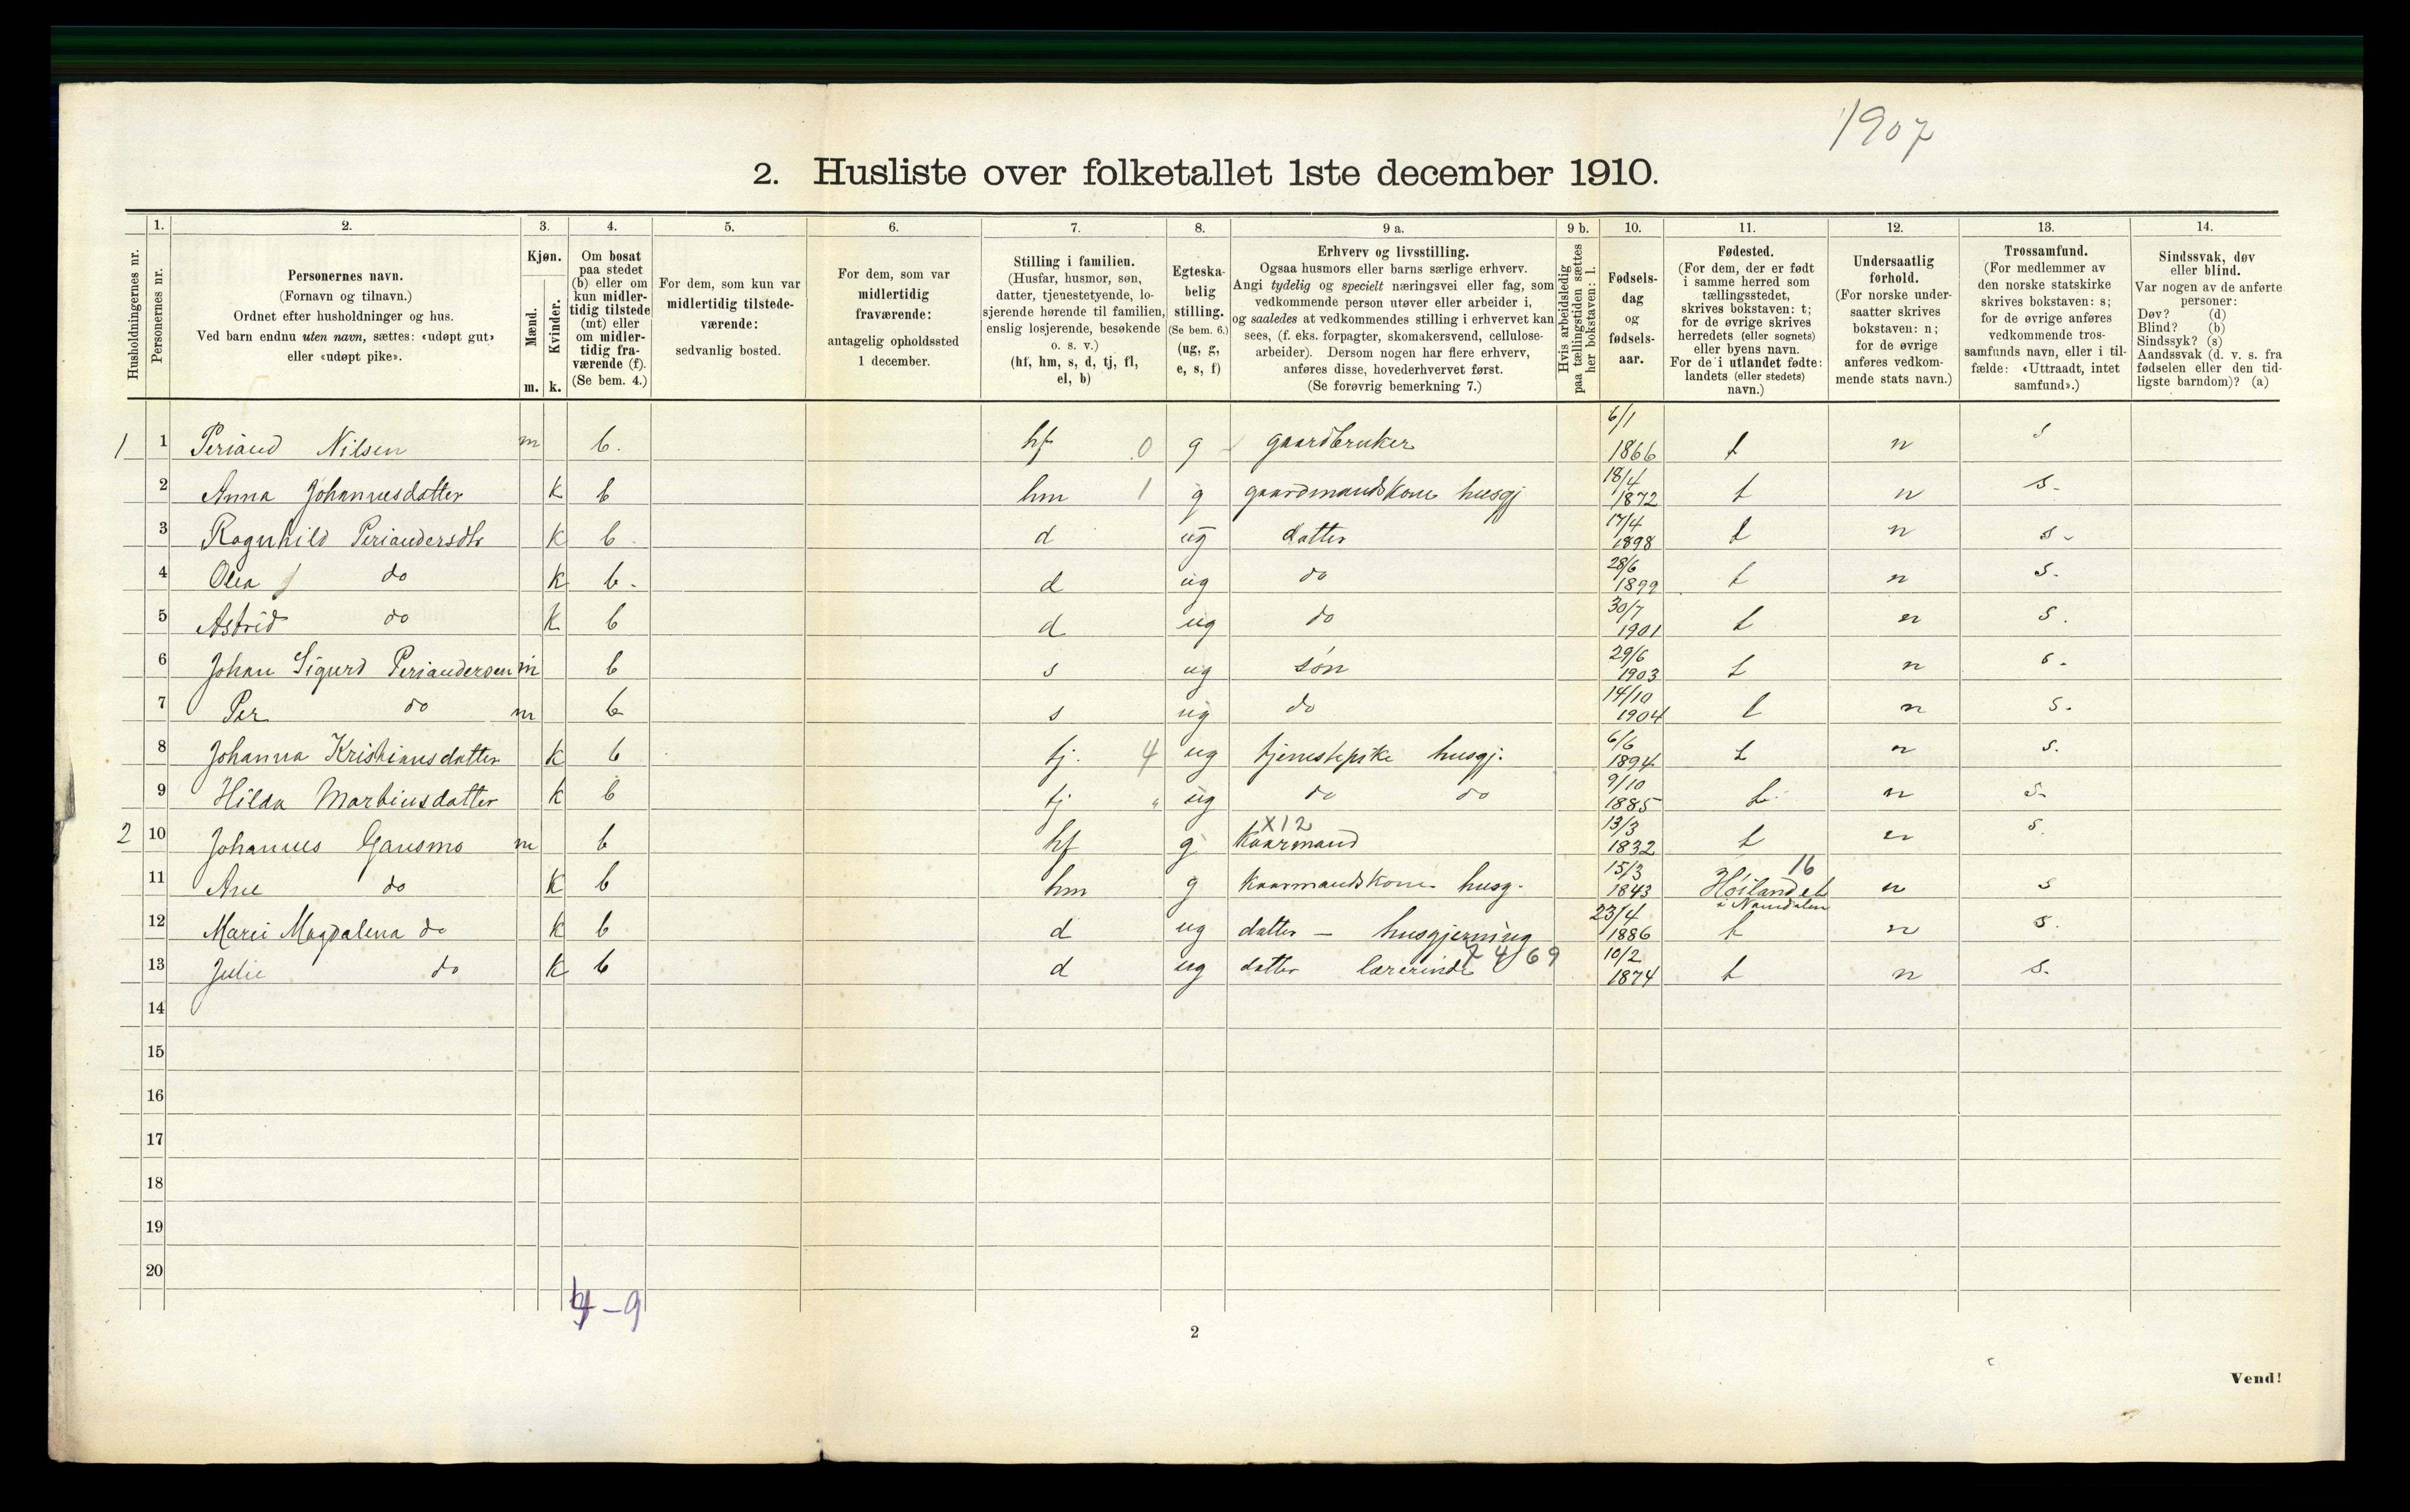 1907
2. Husliste over folketallet 1ste december 1910.
1. 2. 3. 4. 5. 6. 7. 8. 9 a. 9 b. 10. 11. 12. 13. 14.
Husholdningernes nr.
Personernes nr.
Personernes navn.
(Fornavn og tilnavn.)
Ordnet efter husholdninger og hus.
Ved barn endnu uten navn, sættes: «udøpt gut»
eller «udøpt pike».
Kjøn.
Mænd.
Kvinder.
m. k.
Om bosat
paa stedet
(b) eller om
kun midler-
tidig tilstede
(mt) eller
om midler-
tidig fra-
værende (f).
(Se bem. 4.)
For dem, som kun var
midlertidig tilstede-
værende:
sedvanlig bosted.
For dem, som var
midlertidig
fraværende:
antagelig opholdssted
1 december.
Stilling i familien.
(Husfar, husmor, søn,
datter, tjenestetyende, lo-
sjerende hørende til familien,
enslig losjerende, besøkende
o. s. v.)
(hf, hm, s, d, tj, fl,
el, b)
Egteska-
belig
stilling.
(Se bem. 6.)
(ug, g,
e, s, f)
Erhverv og livsstilling.
Ogsaa husmors eller barns særlige erhverv.
Angi tydelig og specielt næringsvei eller fag, som
vedkommende person utøver eller arbeider i,
og saaledes at vedkommendes stilling i erhvervet kan
sees, (f. eks. forpagter, skomakersvend, cellulose-
arbeider). Dersom nogen har flere erhverv,
anføres disse, hovederhvervet først.
(Se forøvrig bemerkning 7.)
Hvis arbeidsledig
paa tællingstiden sættes
her bokstaven: l.
Fødsels-
dag
og
fødsels-
aar.
Fødested.
(For dem, der er født
i samme herred som
tællingsstedet,
skrives bokstaven: t;
for de øvrige skrives
herredets (eller sognets)
eller byens navn.
For de i utlandet fødte:
landets (eller stedets)
navn.)
Undersaatlig
forhold.
(For norske under-
saatter skrives
bokstaven: n;
for de øvrige
anføres vedkom-
mende stats navn.)
Trossamfund.
(For medlemmer av
den norske statskirke
skrives bokstaven: s;
for de øvrige anføres
vedkommende tros-
samfunds navn, eller i til-
fælde: «Uttraadt, intet
samfund».)
Sindssvak, døv
eller blind.
Var nogen av de anførte
personer:
Døv? (d)
Blind? (b)
Sindssyk? (s)
Aandssvak (d. v. s. fra
fødselen eller den tid-
ligste barndom)? (a)
1 1 Periand Nilsen m b. hf 0 g gaardbruker 6/1 1866 t n s
2 Anna Johannesdatter k b hm 1 g gaardmandskone husgj 18/4 1872 t n s.
3 Ragnhild Periandersdtr k b. d ug datter 17/4 1898 t n s.
4 Olea do k b. d ug do 28/6 1899 t n s.
5 Astrid do k b d ug do 30/7 1901 t n s.
6 Johan Sigurd Periandersen m b s ug søn 29/6 1903 t n s.
7 Per do m b s ug do 14/10 1904 t n s.
8 Johanna Kristiansdatter k b tj. 4 ug tjenestepike husgj. 6/6 1894 t n s.
9 Hilda Martinsdatter k b tj " ug do do 9/10 1885 t. n s.
2 10 Johannes Gansmo m b hf g X12 Kaarmand 13/3 1832 t n s.
11 Ane do k b hm g Kaarmandskone husg. 15/3 1843 16 Høilandet i Namdalen n s
12 Marie Magdalena do k b d ug datter – husgjerning 23/4 1886 t n s.
13 Julie do k b d ug datter lærerinde 10/2 1874 t n s.
14
15
16
17
18
19
20
4-9
2
Vend!